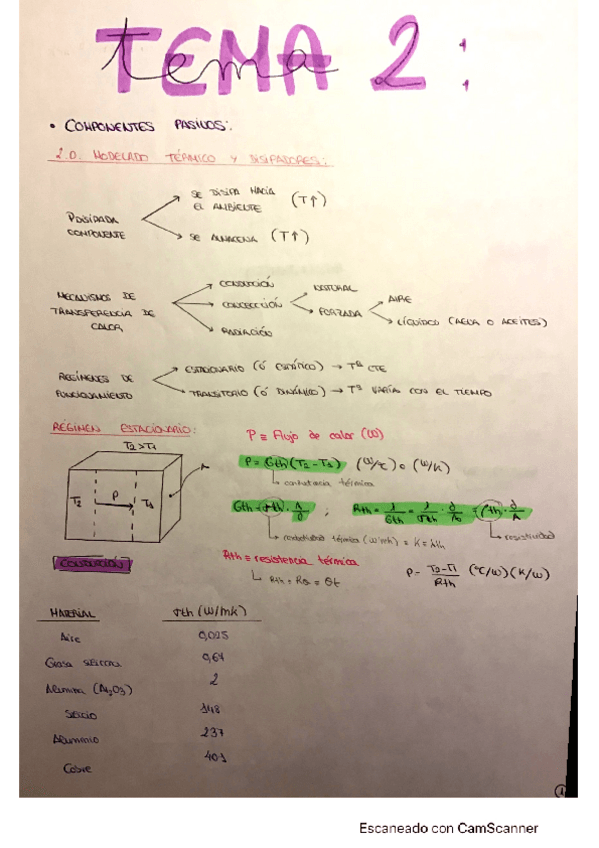 TEMA 2:
tema
• COMPONENTES PASIVOS:
2.0. MODELADO TÉRMICO Y DISIPADORES:
SE DISIPA HACIA EL AMBIENTE (T↑)
COMPONENTE
SE ALMACENA (T↑)
MECANISMOS DE TRANSFERENCIA DE CALOR
CONDUCCIÓN
CONVECCIÓN
RADIACIÓN
NATURAL
FORZADA
AIRE
LÍQUIDO (AGUA O ACEITES)
REGÍMENES DE FUNCIONAMIENTO
ESTACIONARIO (ó ESTÁTICO) → Tª CTE
TRANSITORIO (ó DINÁMICO) → Tª VARÍA CON EL TIEMPO
RÉGIMEN ESTACIONARIO:
T2>T1
T2
P
T1
A
CONDUCCIÓN
P ≡ Flujo de calor (W)
P = Gth (T2 - T1) (W/ºC) o (W/K)
conductancia térmica
Gth = σth · A/d ; Rth = 1/Gth = 1/σth · d/A = ρth · d/A
conductividad térmica (W/mK) = K = λth
resistividad
Rth ≡ resistencia térmica
Rth = Rθ = θt
P = T2-T1/Rth (ºC/W) (K/W)
MATERIAL σth (W/mK)
Aire 0,025
Grasa silicona 0,64
Alúmina (Al2O3) 2
Silicio 148
Aluminio 237
Cobre 401
1
Escaneado con CamScanner